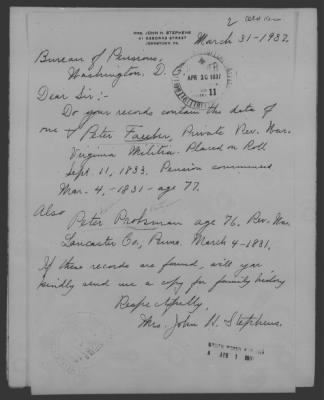 MRS. JOHN H. STEPHENS
JOHNSTOWN, PA.
March 31-1937.
Bureau of Pensions,
Washington, D.
Dear Sir:-
Do your records contain the data of
one Peter Fauber, Private Rev. War.
Virginia Militia - Placed on Roll
Sept. 11, 1833. Pension commenced
Mar. 4, -1831 - age 77.
Also
Peter age 76. Rev. War
Lancaster Co., Penna. March 4-1831.
If these records are found, will you
kindly send me a copy for family history
Respectfully,
Mrs. John H. Stephens.